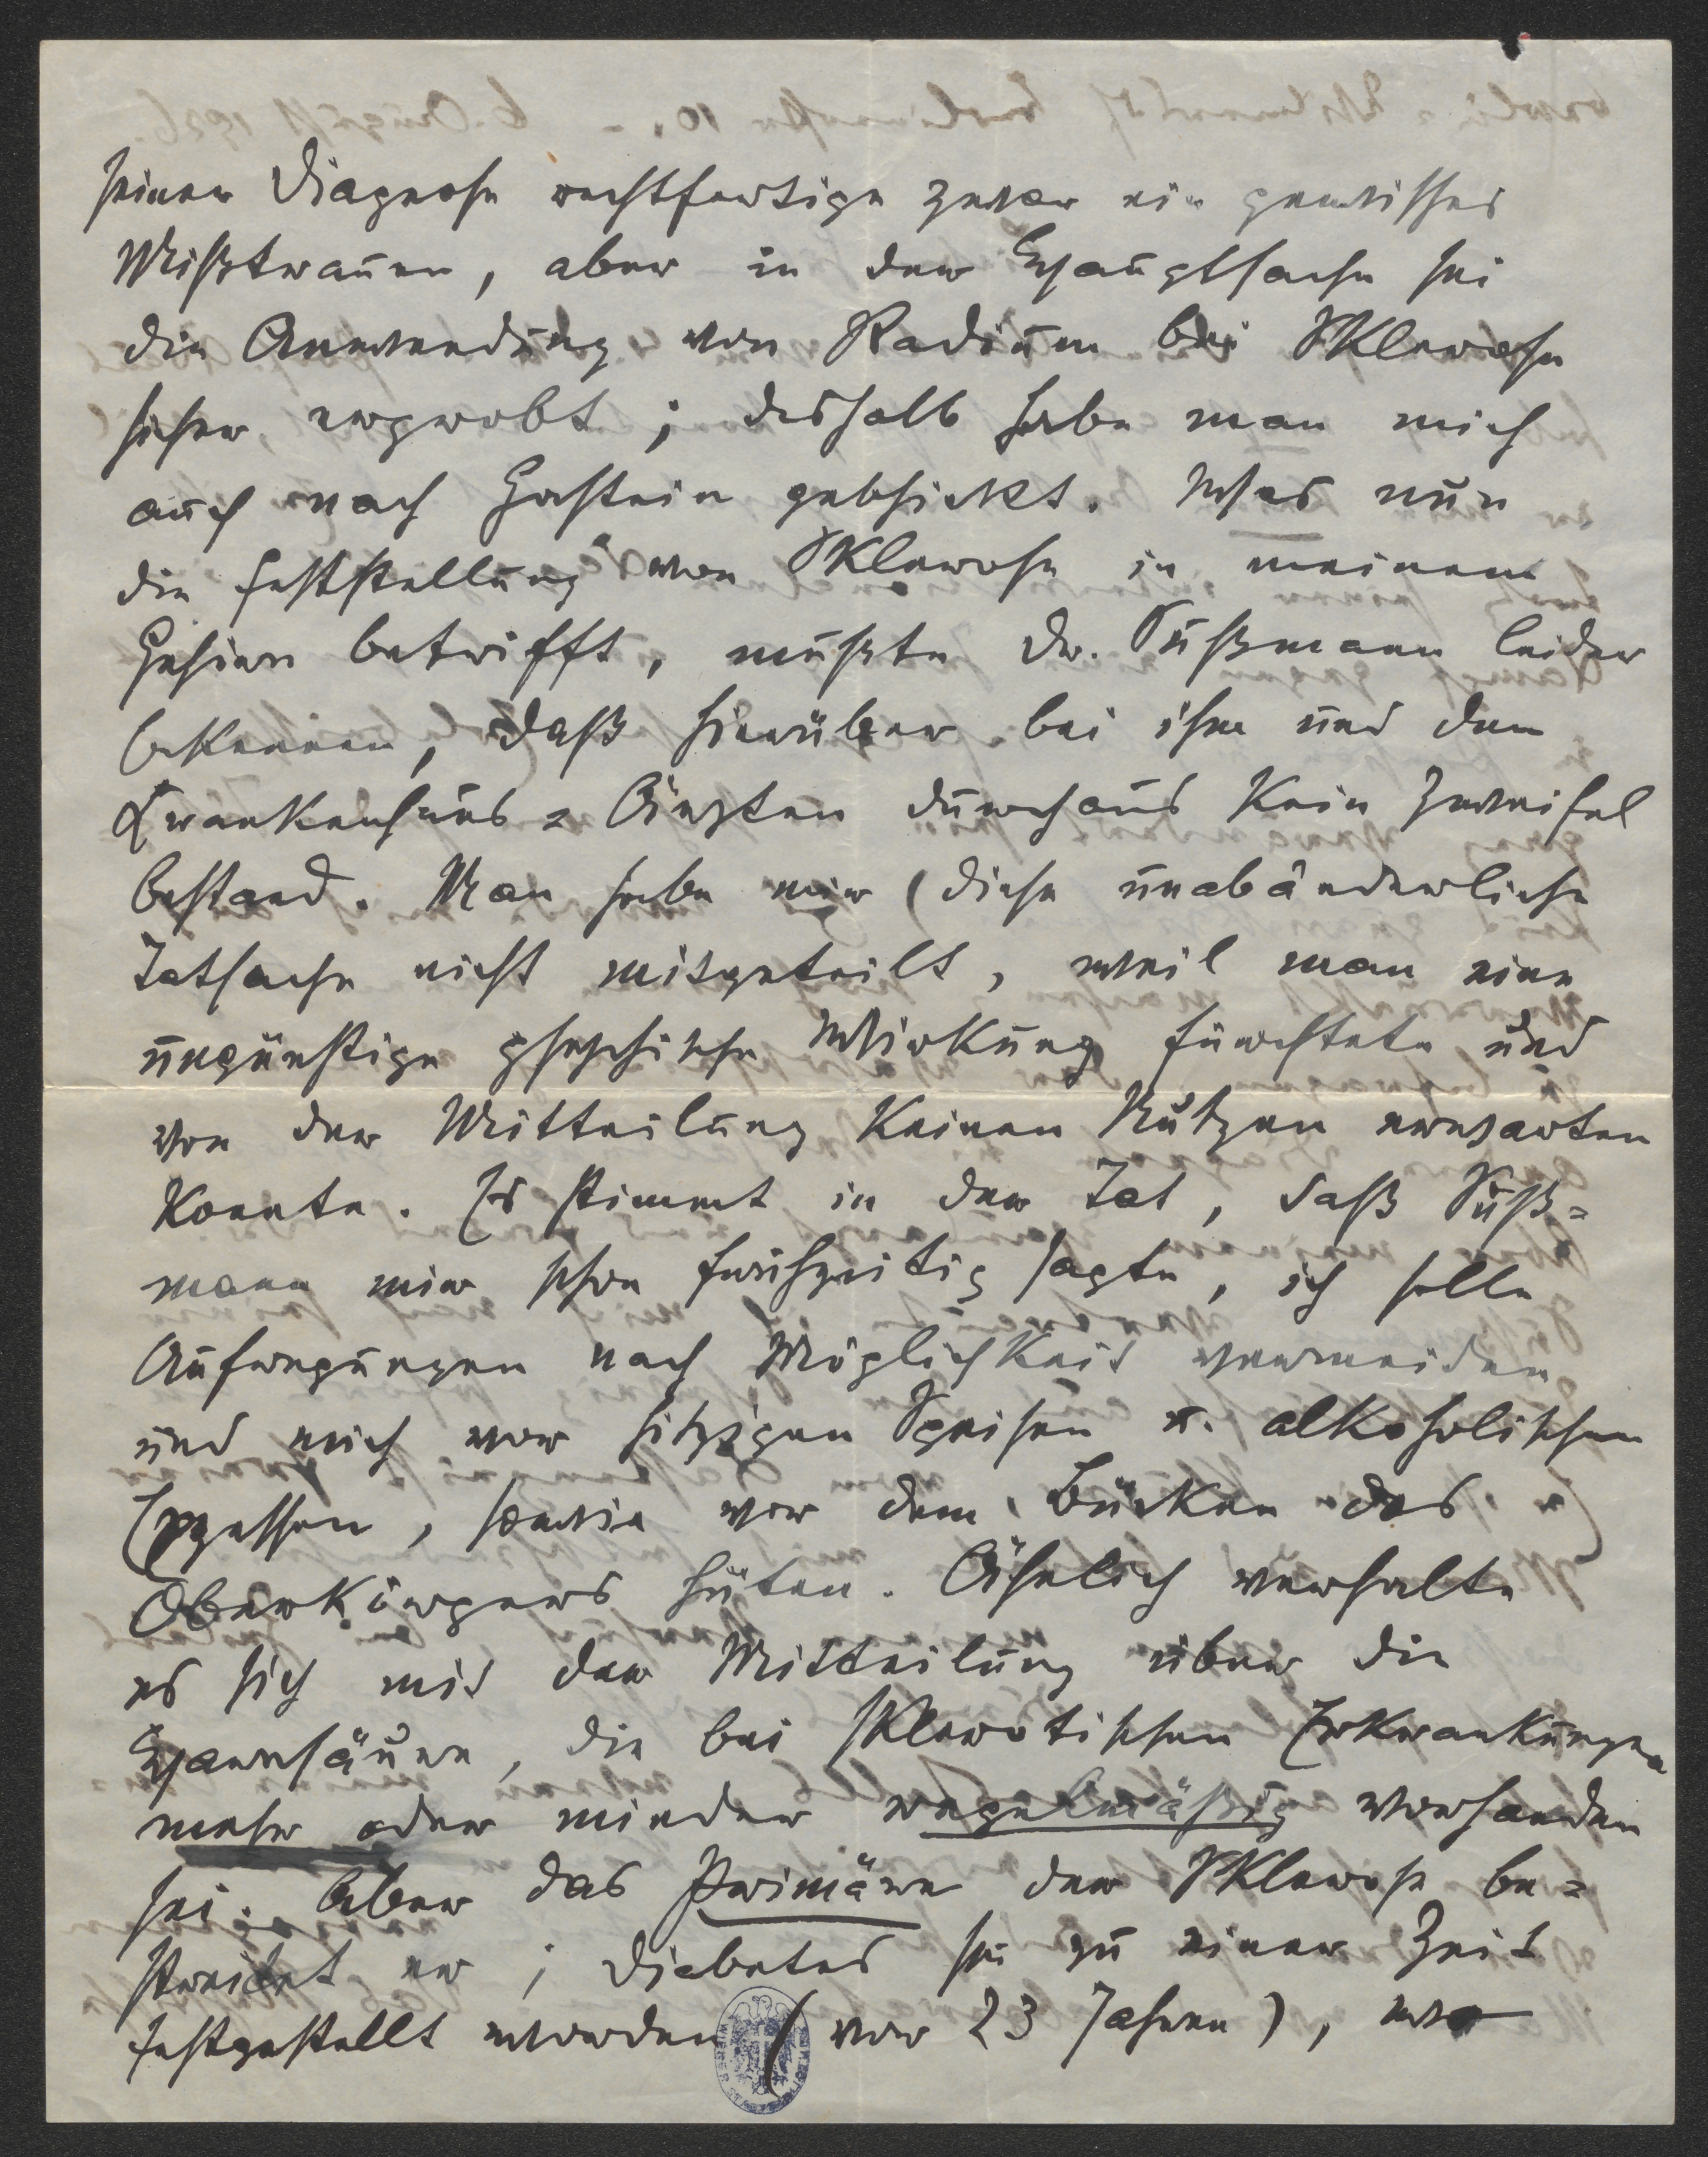 seiner Diagnose rechtfertige zwar ein gewisses
Mißtrauen, aber in der Hauptsache sei
die Anwendung von Radium bei Sklerose
sicher erprobt; deshalb habe man mich
auch nach Gastein geschickt. Was nun
die Feststellung von Sklerose in meinem
Gehirn betrifft, mußte Dr. Süßmann leider
bekennen, daß hierüber bei ihm und den
Krankenhaus-Ärzten durchaus kein Zweifel
bestand. Man habe mir diese unabänderliche
Tatsache nicht mitgeteilt, weil man eine
ungünstige psychische Wirkung fürchtete und
von der Mitteilung keinen Nutzen erwarten
konnte. Es stimmt in der Tat, daß Süß-
mann mir schon frühzeitig sagte, ich solle
Aufregungen nach Möglichkeit vermeiden
und mich vor hitzigen Speisen u. alkoholischen
Exzessen, sowie vor dem Bücken des
Oberkörpers hüten. Ähnlich verhalte
es sich mit der Mitteilung über die
Harnsäure, die bei sklerotischen Erkrankungen
mehr oder minder regelmäßig vorhanden
sei. Aber das Primäre der Sklerose be-
streitet er; Diabetes sei zu einer Zeit
festgestellt worden (vor 23 Jahren), wo